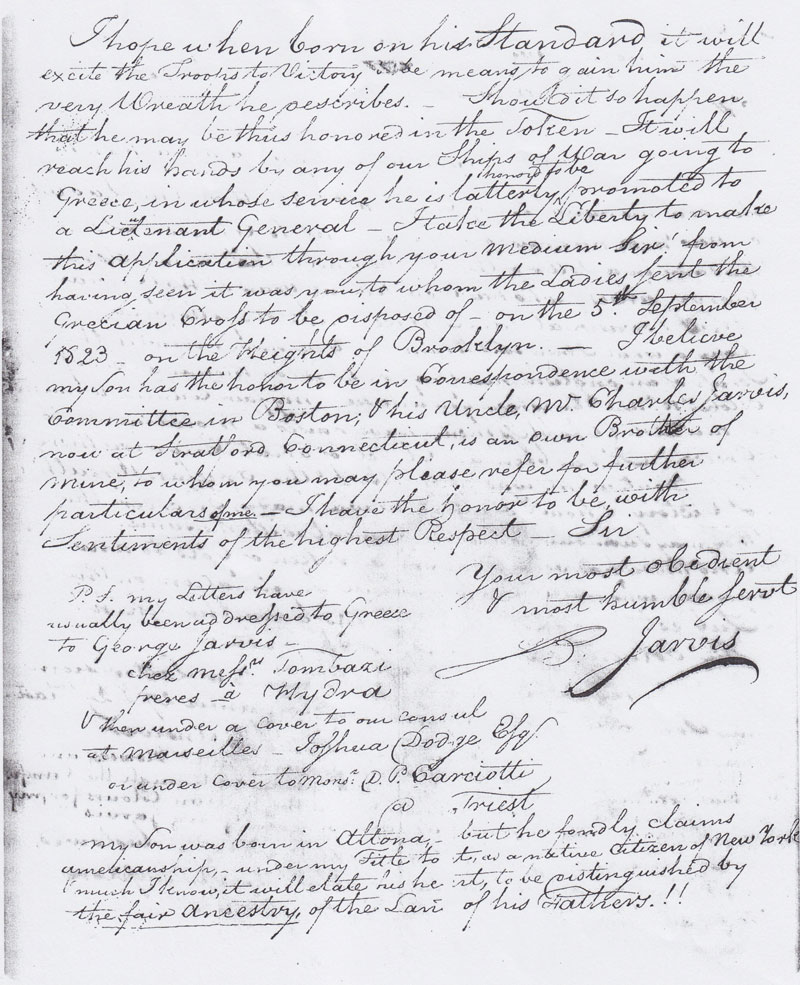 I hope when born on his Standard, it will
excite the Troops to Victory & be means to gain him the
very Wreath he describes. – Should it so happen,
that he may be thus honored in the Token – It will
reach his hands by any of our Ships of War going to
Greece, in whose service he is latterly honor'd to be promoted to
a Lieutenant General – I take the Liberty to make
this application through your medium Sir! from
having seen it was you, to whom the Ladies sent the
Grecian Cross to be disposed of – on the 5th September
1823 – on the Heights of Brooklyn. – I believe
my Son has the honor to be in Correspondence with the
Committee in Boston; & his Uncle, Mr. Charles Jarvis,
now at Stratford Connecticut, is an own Brother of
mine, to whom you may please refer for further
particulars of me. – I have the honor to be, with
Sentiments of the highest Respect – Sir
Your most obedient
& most humble servt
B. Jarvis
P.S. my Letters have
usually been addressed to Greece
to George Jarvis –
chez Messrs Tombazi
freres – à Hydra
& then under a cover to our Consul
at Marseilles – Joshua Dodge Esqr.
or under cover to Monsr. D. P. Carciotti
@ Triest
my Son was born in Altona, – but he fondly claims
americanship, – under my Title to it, as a native Citizen of New York
much I know, it will elate his he rt, to be distinguished by
the fair Ancestry, of the Lan of his Fathers.!!